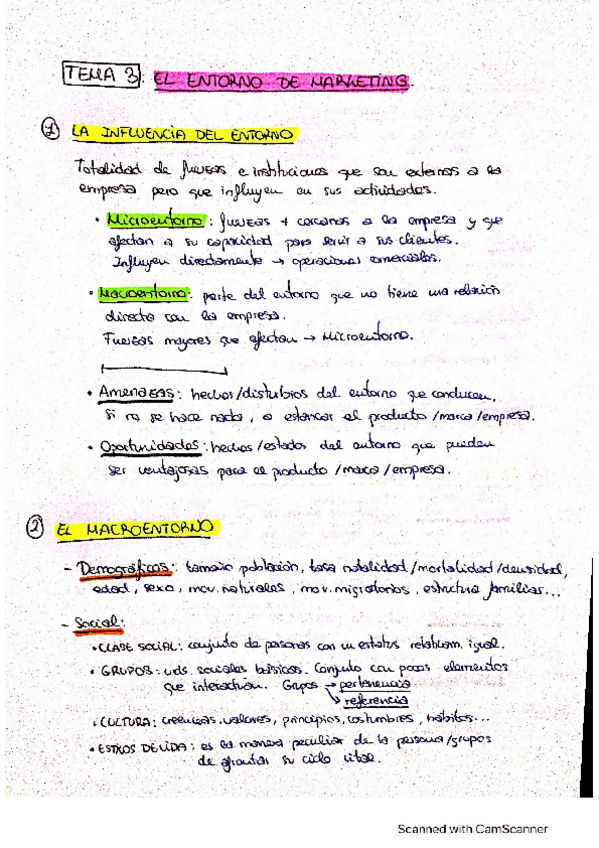 TEMA 3: EL ENTORNO DE MARKETING.
1 LA INFLUENCIA DEL ENTORNO
Totalidad de fuerzas e instituciones que son externas a la
empresa pero que influyen en sus actividades.
• Microentorno: fuerzas + cercanas a la empresa y que
afectan a su capacidad para servir a sus clientes.
Influyen directamente → operaciones comerciales.
• Macroentorno: parte del entorno que no tiene una relación
directa con la empresa.
Fuerzas mayores que afectan → Microentorno.
• Amenazas: hechos/disturbios del entorno que conducen,
si no se hace nada, a estancar el producto/marca/empresa.
• Oportunidades: hechos/estados del entorno que pueden
ser ventajosas para el producto/marca/empresa.
2 EL MACROENTORNO
- Demográficos: tamaño población, tasa natalidad/mortalidad/densidad,
edad, sexo, mov. naturales, mov. migratorios, estructura familiar...
- Social:
• CLASE SOCIAL: conjunto de personas con un estatus relativam. igual.
• GRUPOS: uds. sociales básicas. Conjunto con pocos elementos
que interactúan. Grupos → pertenencia
→ referencia
• CULTURA: creencias, valores, principios, costumbres, hábitos...
• ESTILOS DE VIDA: es la manera peculiar de la persona/grupos
de afrontar su ciclo vital.
Scanned with CamScanner